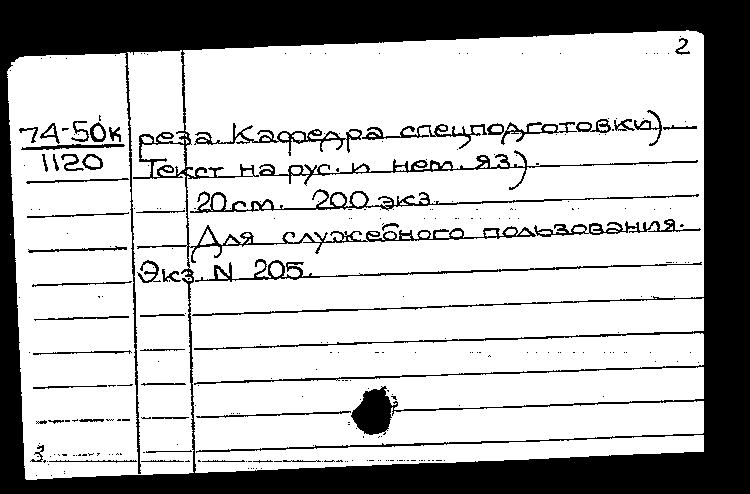 2
74-50к
1120
реза. Кафедра спецподготовки).
Текст на рус. и нем. яз.).
20 см. 200 экз.
Для служебного пользования.
Экз. N 205.
3